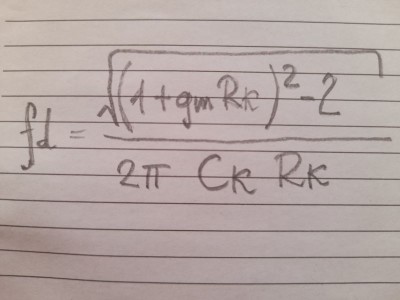 fd = √((1+gmRk)²-2)
2π Ck Rk